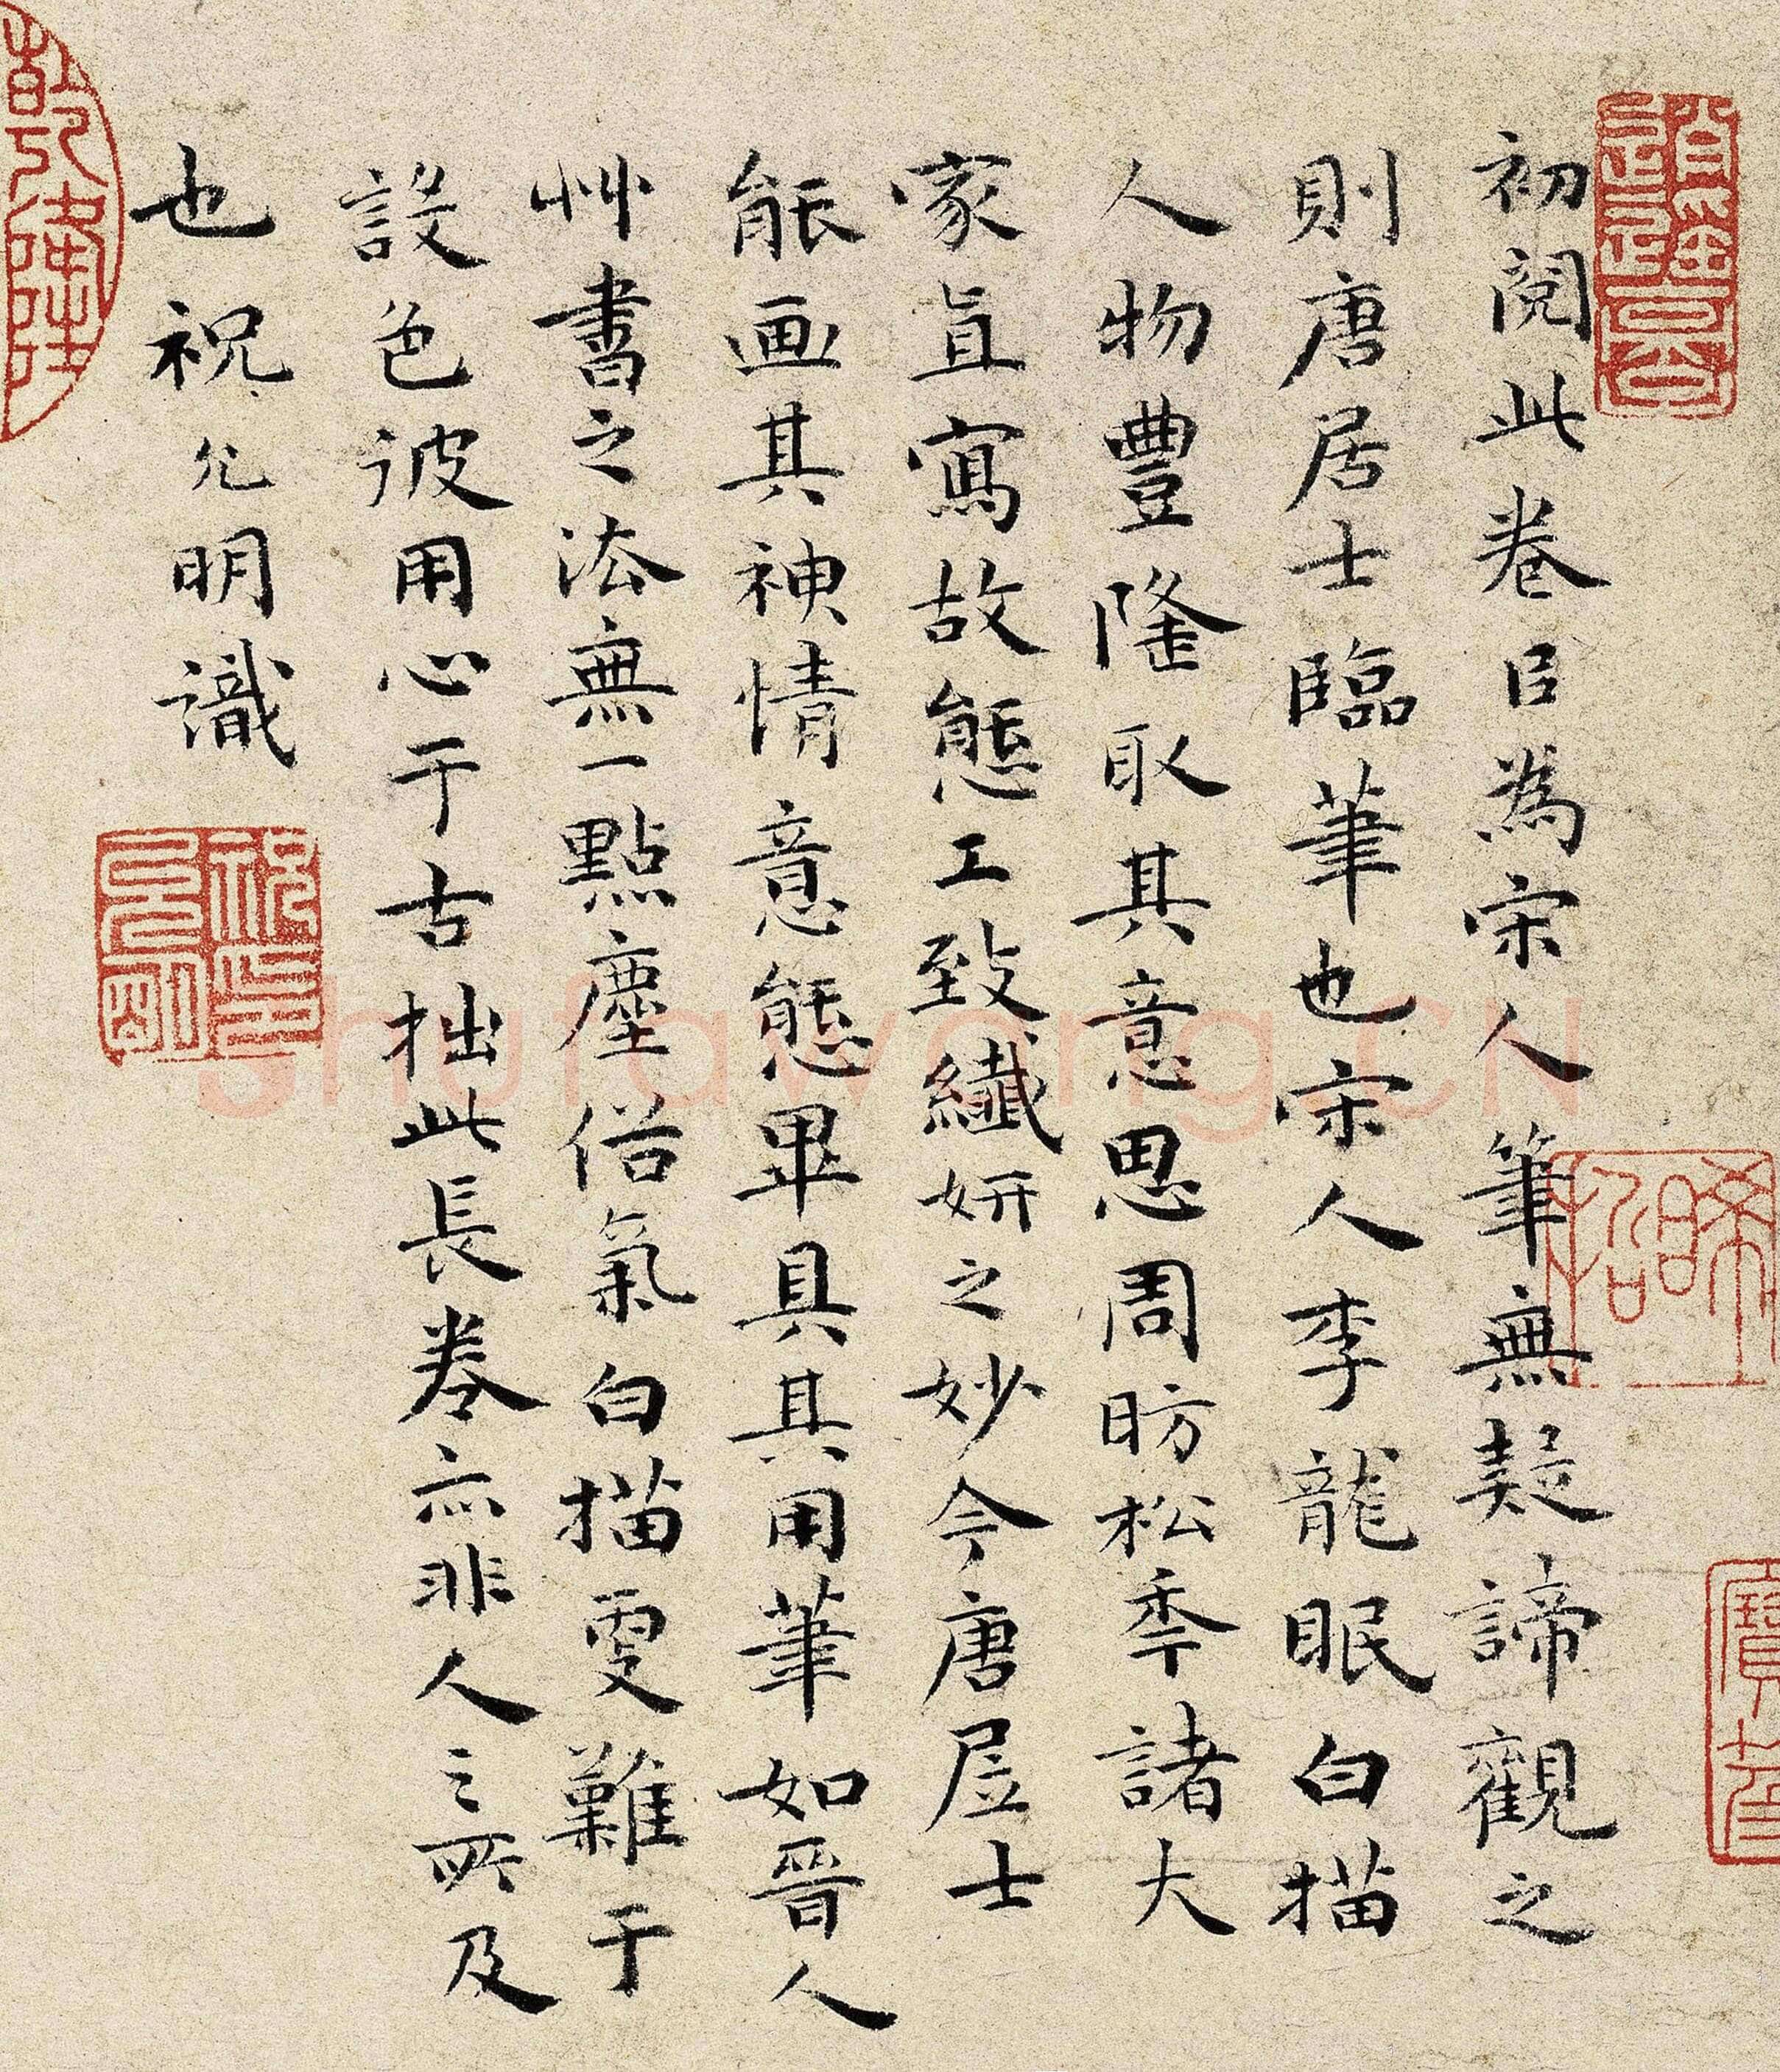 初閱此卷㠯為宋人筆無疑諦觀之
則唐居士臨筆也宋人李龍眠白描
人物豐隆取其意思周昉松季諸大
家真寫故態工致纖妍之妙今唐居士
能画其神情意態畢具其用筆如晉人
艸書之法無一點塵俗氣白描更難于
設色彼用心于古拙此長卷亦非人之所及
也祝允明識
祝允明印
shufawang.CN